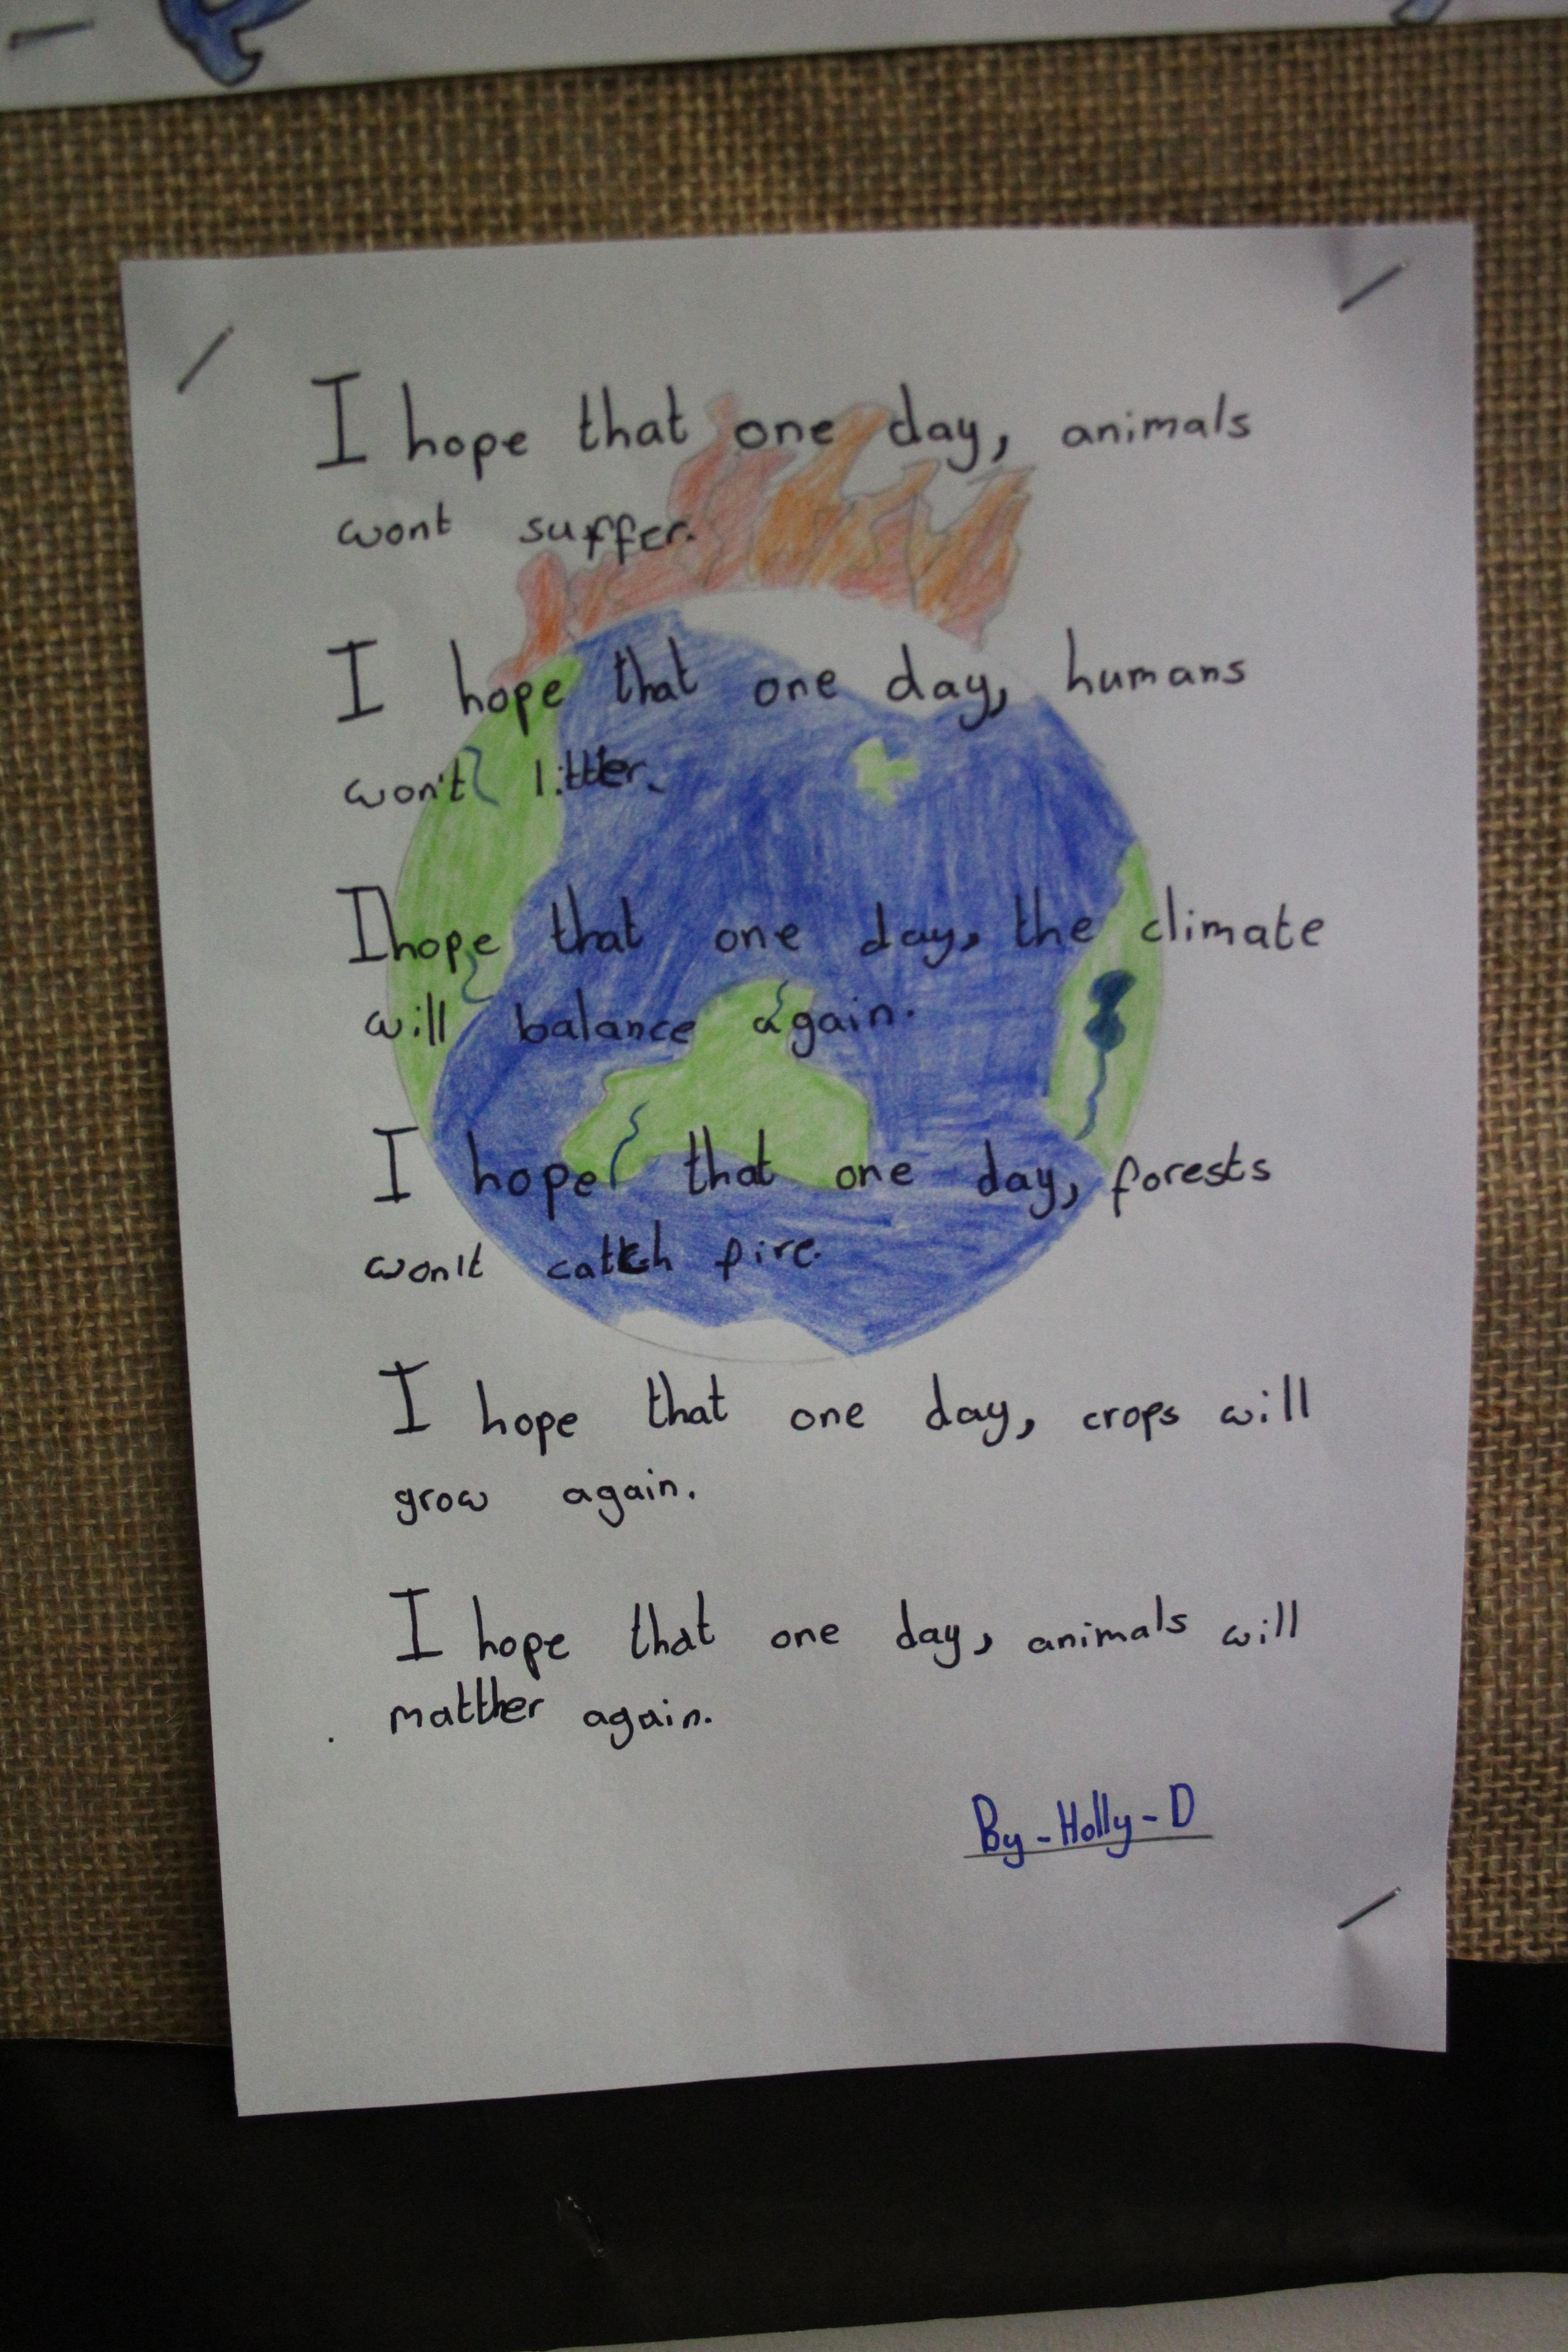 I hope that one day, animals
wont suffer.
I hope that one day, humans
won't litter.
I hope that one day, the climate
will balance again.
I hope that one day, forests
won't catch fire.
I hope that one day, crops will
grow again.
I hope that one day, animals will
matther again.
By - Holly - D